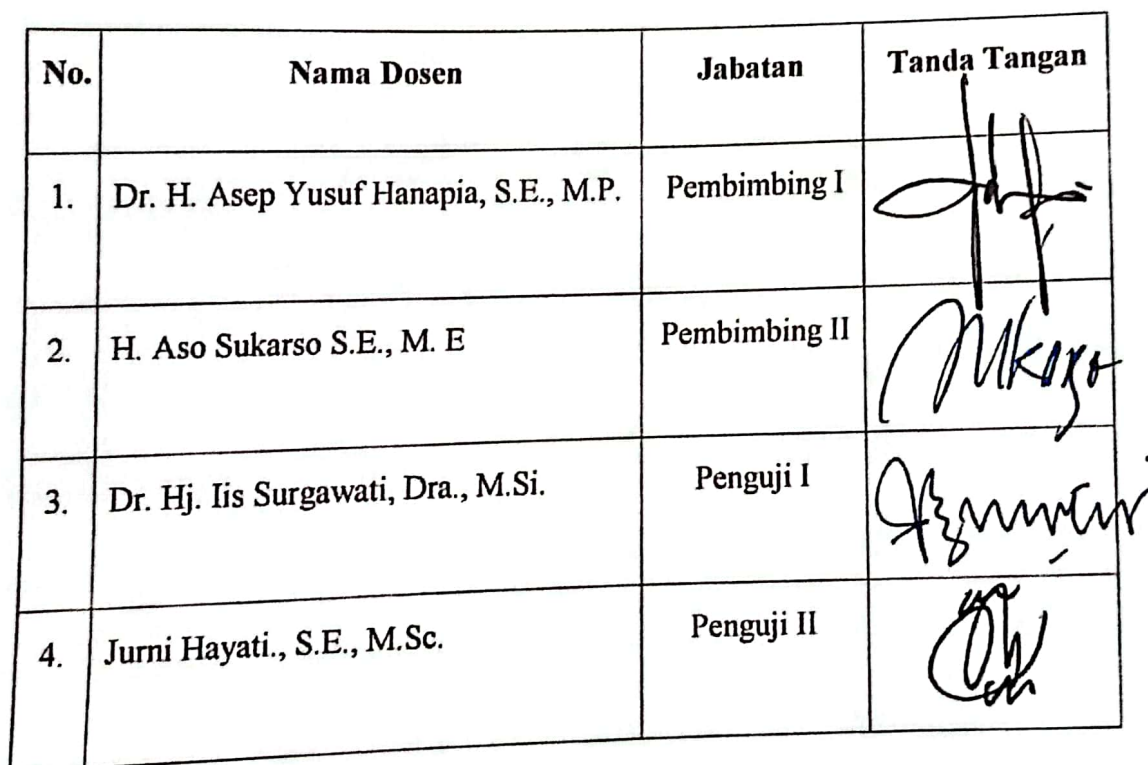 No. Nama Dosen Jabatan Tanda Tangan
1. Dr. H. Asep Yusuf Hanapia, S.E., M.P. Pembimbing I
2. H. Aso Sukarso S.E., M. E Pembimbing II
3. Dr. Hj. Iis Surgawati, Dra., M.Si. Penguji I
4. Jurni Hayati., S.E., M.Sc. Penguji II